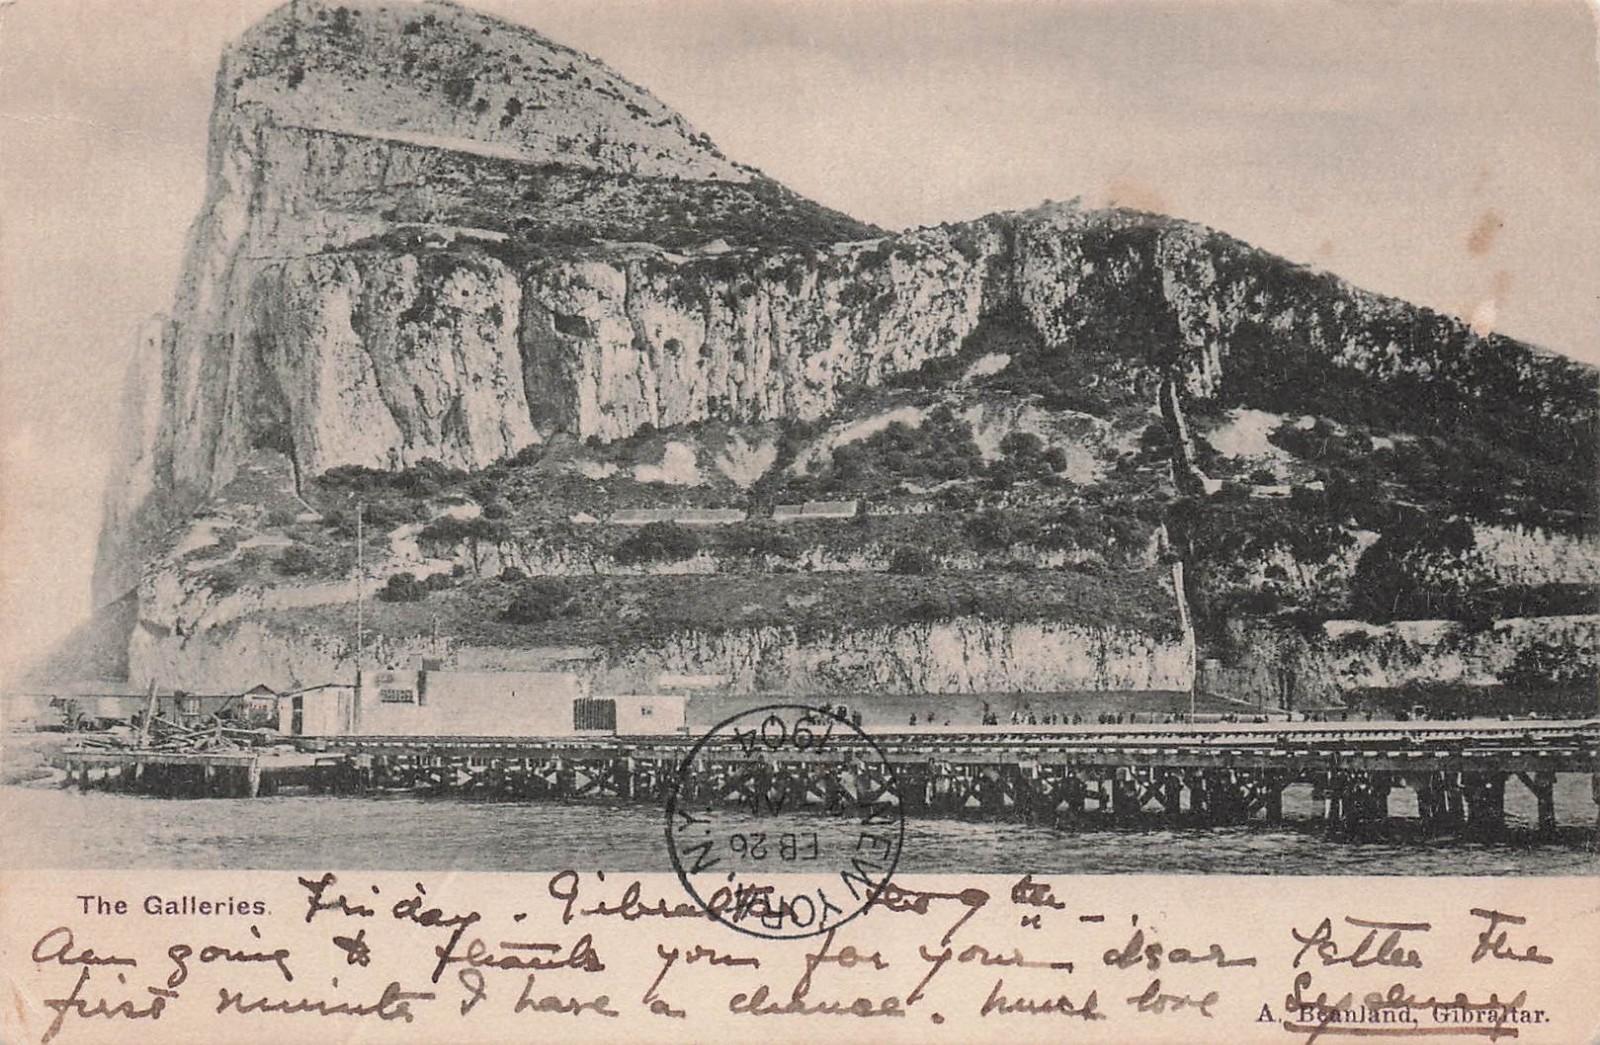 1904
AM
FEB 26
NEW YORK N.Y.
The Galleries.
Friday. Gibraltar
Am going to thank you for your dear letter the
first minute I have a chance. much love
A. Beanland, Gibraltar.